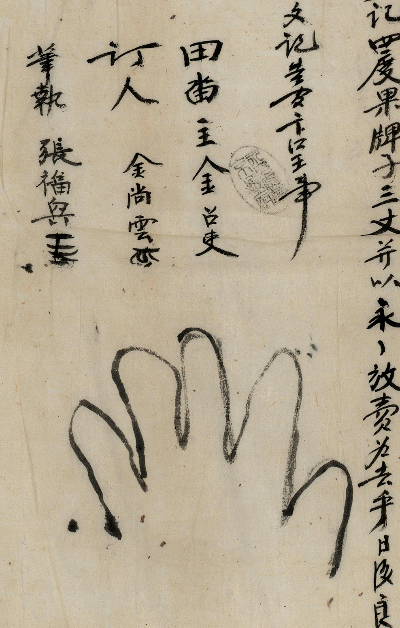 記四度果牌子三丈并以永〻放賣爲去乎日後良
文記告卞呈事
田畓主金召史
訂人 金尚雲
筆執 張福興